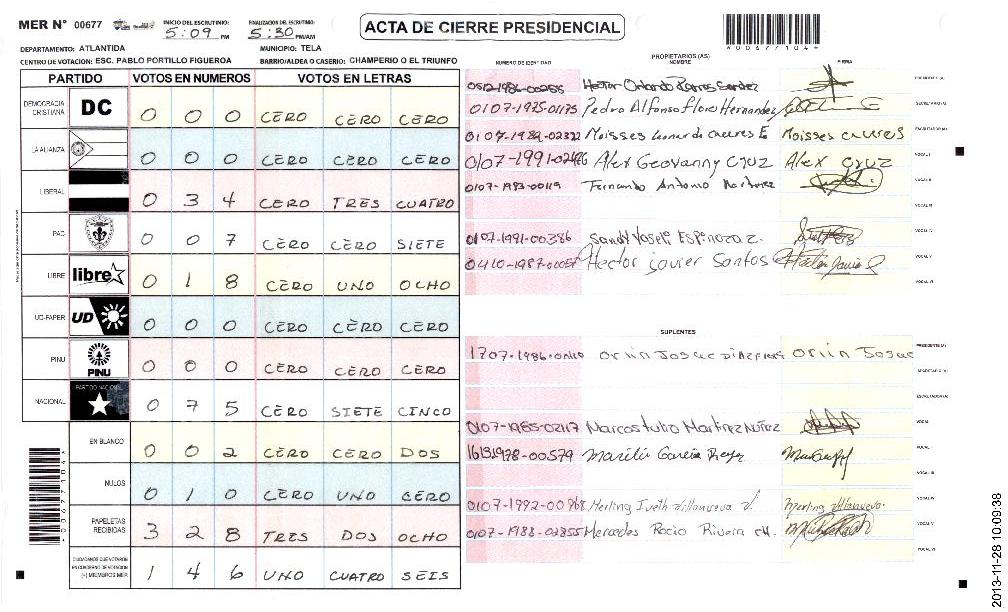 MER N° 00677 INICIO DEL ESCRUTINIO: 5:09 PM FINALIZACION DEL ESCRUTINIO: 5:30 PM/AM ACTA DE CIERRE PRESIDENCIAL
0006771044
DEPARTAMENTO: ATLANTIDA MUNICIPIO: TELA
CENTRO DE VOTACION: ESC. PABLO PORTILLO FIGUEROA BARRIO/ALDEA O CASERIO: CHAMPERIO O EL TRIUNFO
PARTIDO VOTOS EN NUMEROS VOTOS EN LETRAS
DEMOCRACIA CRISTIANA DC 0 0 0 CERO CERO CERO
LA ALIANZA 0 0 0 CERO CERO CERO
LIBERAL 0 3 4 CERO TRES CUATRO
PAC 0 0 7 CERO CERO SIETE
LIBRE libre 0 1 8 CERO UNO OCHO
UD-FAPER UD 0 0 0 CERO CERO CERO
PINU PINU 0 0 0 CERO CERO CERO
NACIONAL PARTIDO NACIONAL 0 7 5 CERO SIETE CINCO
EN BLANCO 0 0 2 CERO CERO DOS
NULOS 0 1 0 CERO UNO CERO
PAPELETAS RECIBIDAS 3 2 8 TRES DOS OCHO
CIUDADANOS QUE VOTARON EN CUADERNO DE VOTACION (+) MIEMBROS MER 1 4 6 UNO CUATRO SEIS
0006771044
NUMERO DE IDENTIDAD PROPIETARIOS (AS) NOMBRE FIRMA
Hector Orlando PRESIDENTE (A)
0107-1975-01175 Pedro Alfonso Flores Hernandez SECRETARIO (A)
0107-1982-02322 Moisses Leonardo caceres E Moisses caceres ESCRUTADOR (A)
0107-1991-02486 Alex Geovanny Cruz Alex Cruz VOCAL I
0107-1983-00119 Fernando Antonio Martinez VOCAL II
VOCAL III
0107-1991-00386 Sandy Yoseli Espinoza z. VOCAL IV
0410-1987-00057 Hector javier Santos VOCAL V
VOCAL VI
SUPLENTES
Oriin Josue Oriin Josue PRESIDENTE (A)
SECRETARIO (A)
ESCRUTADOR (A)
0107-1985-02117 Marcos tulio Martinez Nuñez VOCAL I
1613-1978-00579 Marilú Garcia Reyes VOCAL II
VOCAL III
0107-1992-00968 Merling Iveth Villanueva Merling Villanueva VOCAL IV
0107-1983-02855 Mercedes Rocio Rivera VOCAL V
VOCAL VI
2013-11-28 10:09:38